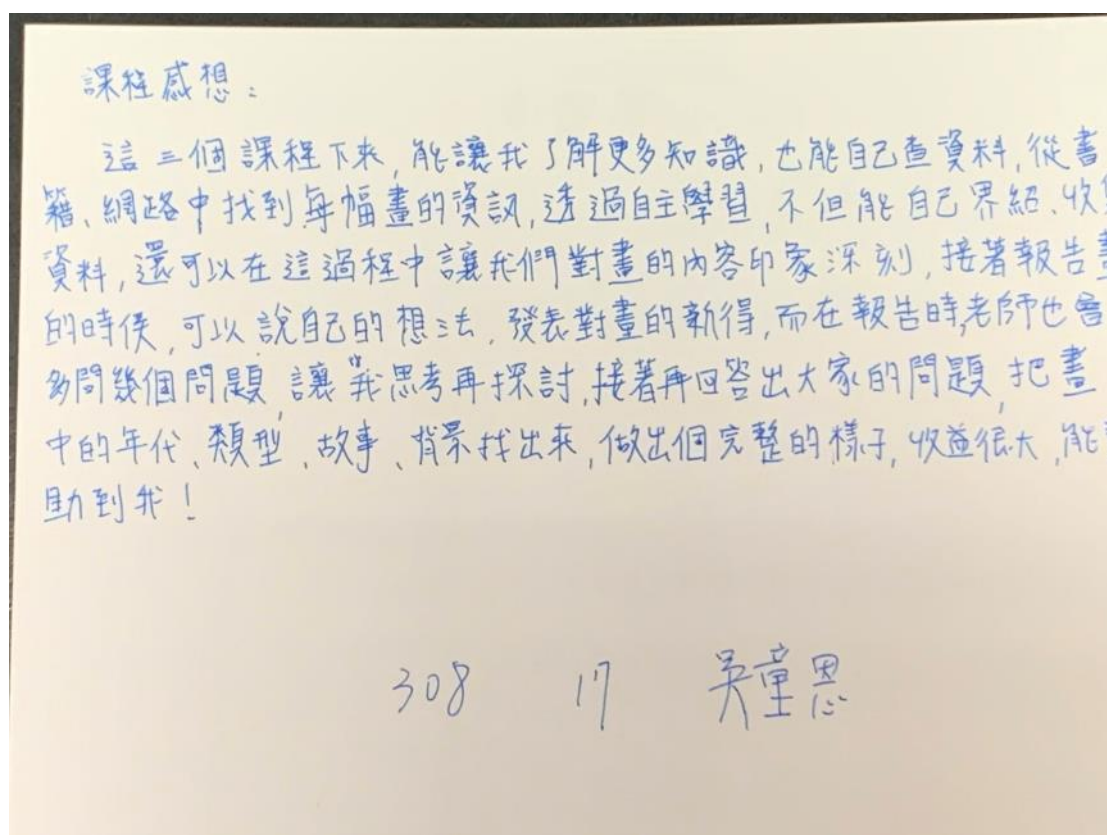 課程感想：
這三個課程下來,能讓我了解更多知識,也能自己查資料,從書
籍、網路中找到每幅畫的資訊,透過自主學習,不但能自己界紹、收
資料,還可以在這過程中讓我們對畫的內容印象深刻,接著報告
的時侯,可以說自己的想法,發表對畫的新得,而在報告時,老師也會
多問幾個問題,讓我思考再探討,接著再回答出大家的問題,把畫
中的年代、類型、故事、背景找出來,做出個完整的樣子,收益很大,能
助到我!
308 17 吳童恩